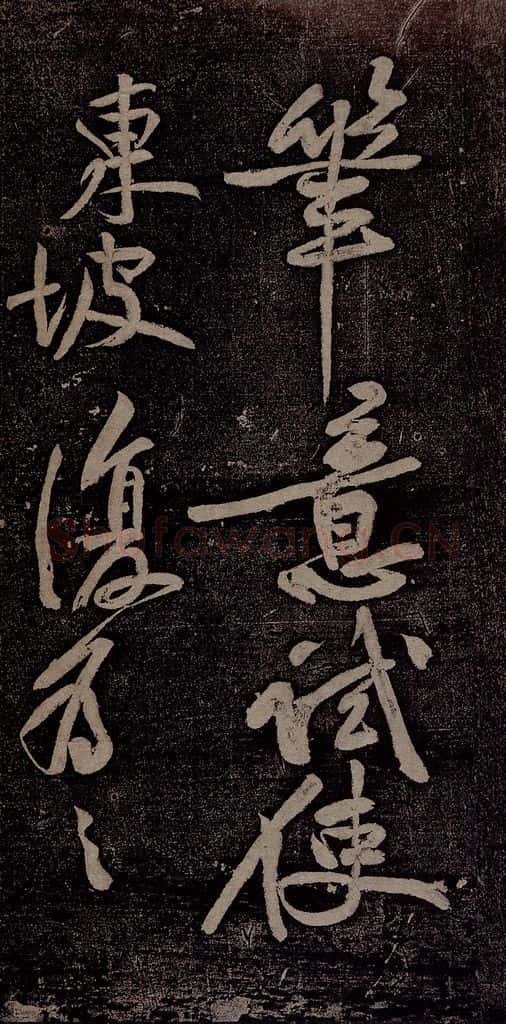 筆意試使
東坡復為之
Shufawang.CN